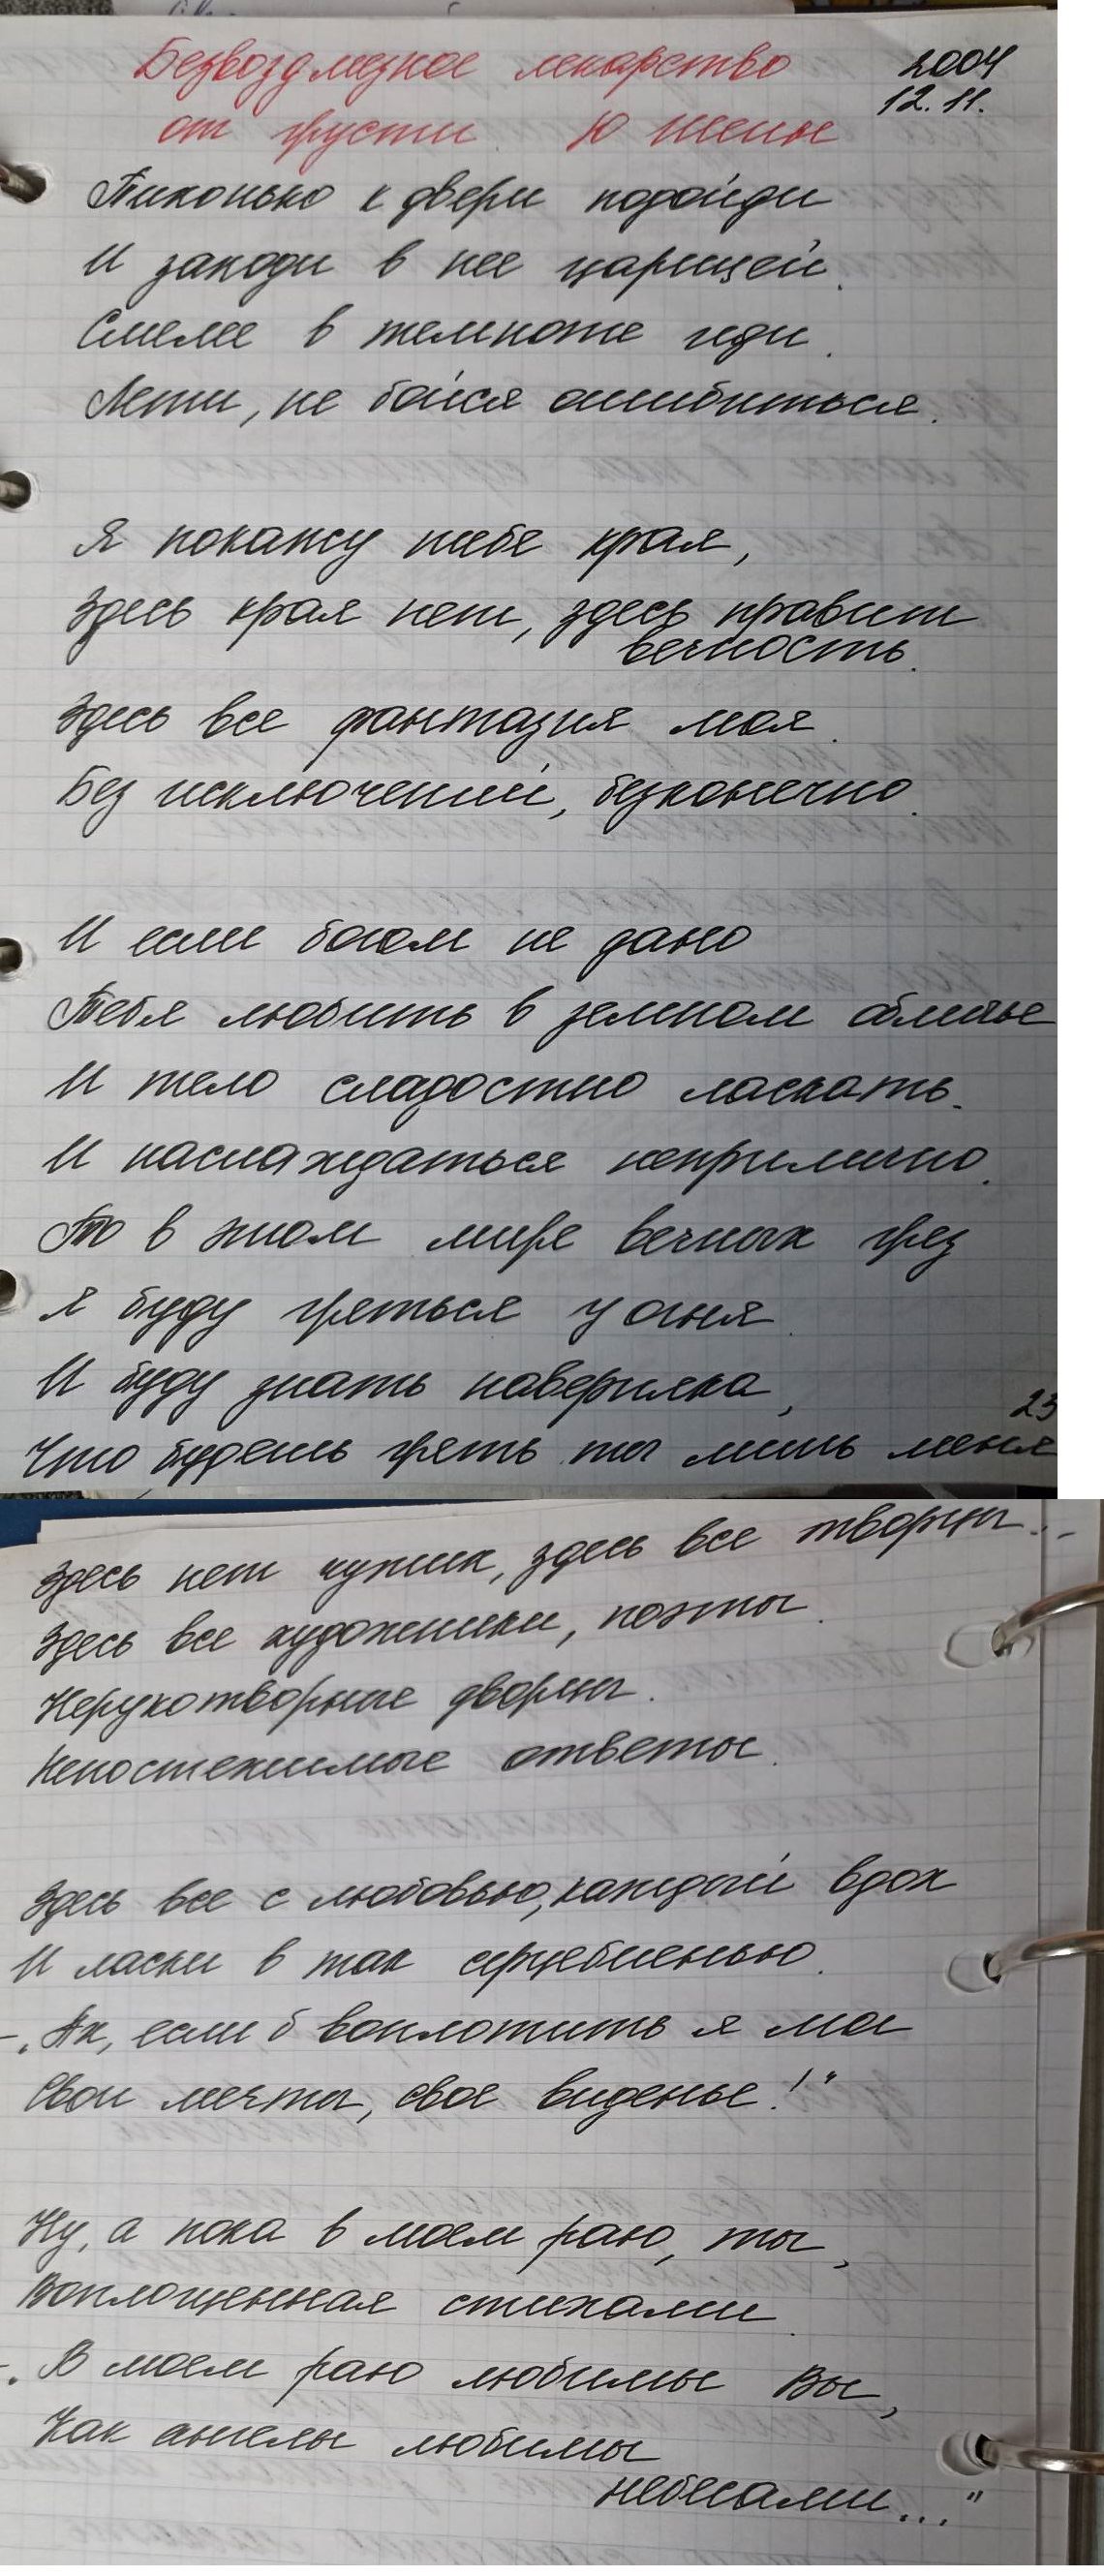 Безвоздмезное лекарство
2004
от грусти. Ю Шенье
12.11.
Тихонько к двери подойди
И заходи в нее царицей.
Смелее в темноте иди.
Лети, не бойся ошибиться.
Я покажу тебе края,
Здесь края нет, здесь правит
вечность.
Здесь все фантазия моя.
Без исключений, безконечно.
И если богом не дано
Тебя любить в земном обличье
И тело сладостно ласкать.
И наслаждаться неприлично.
То в этом мире вечных грез
Я буду греться у огня.
И буду знать наверняка,
23
Что будешь греть ты лишь меня
Здесь нет чужих, здесь все творцы...
Здесь все художники, поэты.
Нерукотворные дворцы.
Непостежимые ответы.
Здесь все с любовью, каждый вдох
И ласки в так серцебиенью.
- „Ах, если б воплотить я мог
Свои мечты, свое виденье!"
Ну, а пока в моем раю, ты,
Воплощенная стихами.
-„В моем раю любимы Вы,
Как ангелы любимы
небесами..."